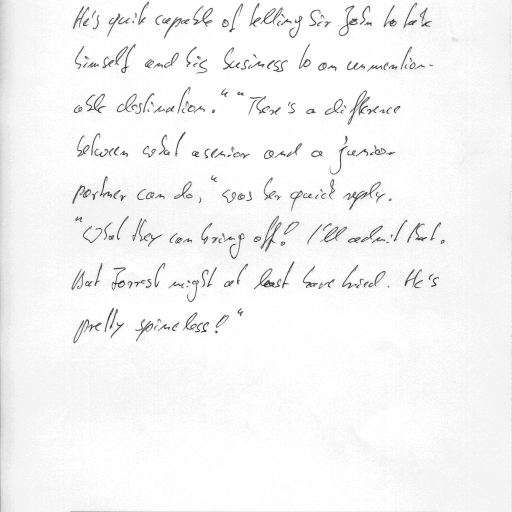 He's quite capable of telling Sir John to take
himself and his business to an unmention-
able destination." "There's a difference
between what a senior and a junior
partner can do," was her quick reply.
"What they can bring off! I'll admit that.
But Forrest might at least have tried. He's
pretty spineless!"